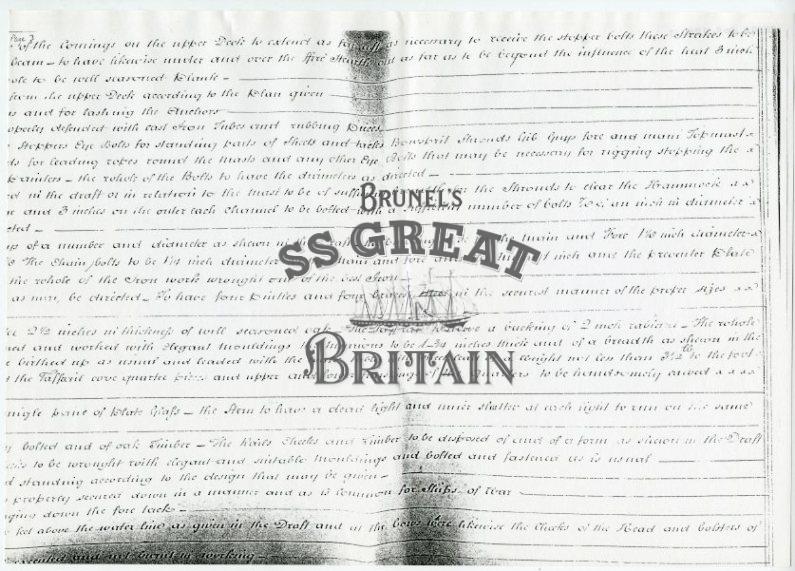 Page 3
of the Comings on the upper Deck to extend as far aft as necessary to receive the stopper bolts these Strakes to be
beam – to have likewise under and over the Fire Hearth out as far as to be beyond the influence of the heat 3 inch
to be well seasoned Plank –
from the upper Deck according to the Plan given
and for lashing the Anchors
properly defended with cast Iron Tubes and rubbing pieces
Stoppers Eye Bolts for standing parts of Sheets and tacks Bowsprit Shrouds Gib Guys fore and main Topmast
for leading ropes round the masts and any other Eye Bolts that may be necessary for rigging stopping the
Painters – the whole of the Bolts to have the diameters as directed –
in the draft or in relation to the mast to be of the Shrouds to clear the Hammock
and 3 inches on the outer each Channel to be bolted with a sufficient number of bolts an inch in diameter
BRUNEL'S
of a number and diameter as shewn in the main and Fore 1⅛ inch diameter
The Chain bolts to be 1¼ inch diameter main and fore and inch and the preventer Plate
SS GREAT
the whole of the Iron work wrought out of the best Iron
as may be directed – To have four Pintles and four braces in the securest manner of the proper sizes
2½ inches in thickness of well seasoned oak The Taffrail to have a backing of 2 inch – The whole
and worked with Elegant Mouldings the Munnions to be inches thick and of a breadth as shewn in the
birthed up as usual and leaded with the weight not less than 3½ lb to the foot
BRITAIN
the Taffrail cove quarter pieces and upper and lower of to be handsomely carved
single pane of Plate Glass – the Stern to have a dead light and inner shutter at each light to run on the same
bolted and of oak Timber – The Rails Cheeks and Timber to be disposed of and of a form as shewn in the Draft
to be wrought with elegant and suitable Mouldings and bolted and fastened as is usual
standing according to the design that may be given –
properly secured down in a manner and as is common for Ships of War
down the fore tack –
feet above the water line as given in the Draft and at the bows likewise the Cheeks of the Head and bolsters of
executed and not burnt in working –